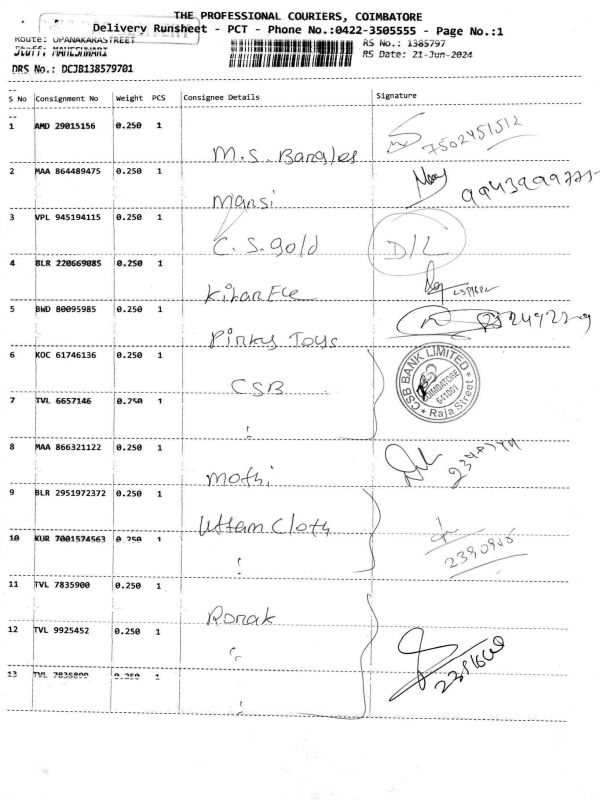 THE PROFESSIONAL COURIERS, COIMBATORE
Delivery Runsheet - PCT - Phone No.:0422-3505555 - Page No.:1
Route: UPANAKARASTREET
RS No.: 1385797
Staff: MAHESHWARI
RS Date: 21-Jun-2024
DRS No.: DCJB138579701
S No Consignment No Weight PCS Consignee Details Signature
1 AMD 29015156 0.250 1 M.S. Bangles 7502451512
2 MAA 864489475 0.250 1 Mansi
3 VPL 945194115 0.250 1 C.S.Gold D/L
4 BLR 220669085 0.250 1
5 BWD 80095985 0.250 1 Pinky Toys
6 KOC 61746136 0.250 1 CSB CSB BANK LIMITED COIMBATORE 641001 * Raja Street *
7 TVL 6657146 0.250 1 :
8 MAA 866321122 0.250 1 Mothi
9 BLR 2951972372 0.250 1 Uttam Cloth
10 KUR 7001574563 0.250 1 : 2390908
11 TVL 7835900 0.250 1 Ronak
12 TVL 9925452 0.250 1 :
13 TVL 7835899 0.250 1 :